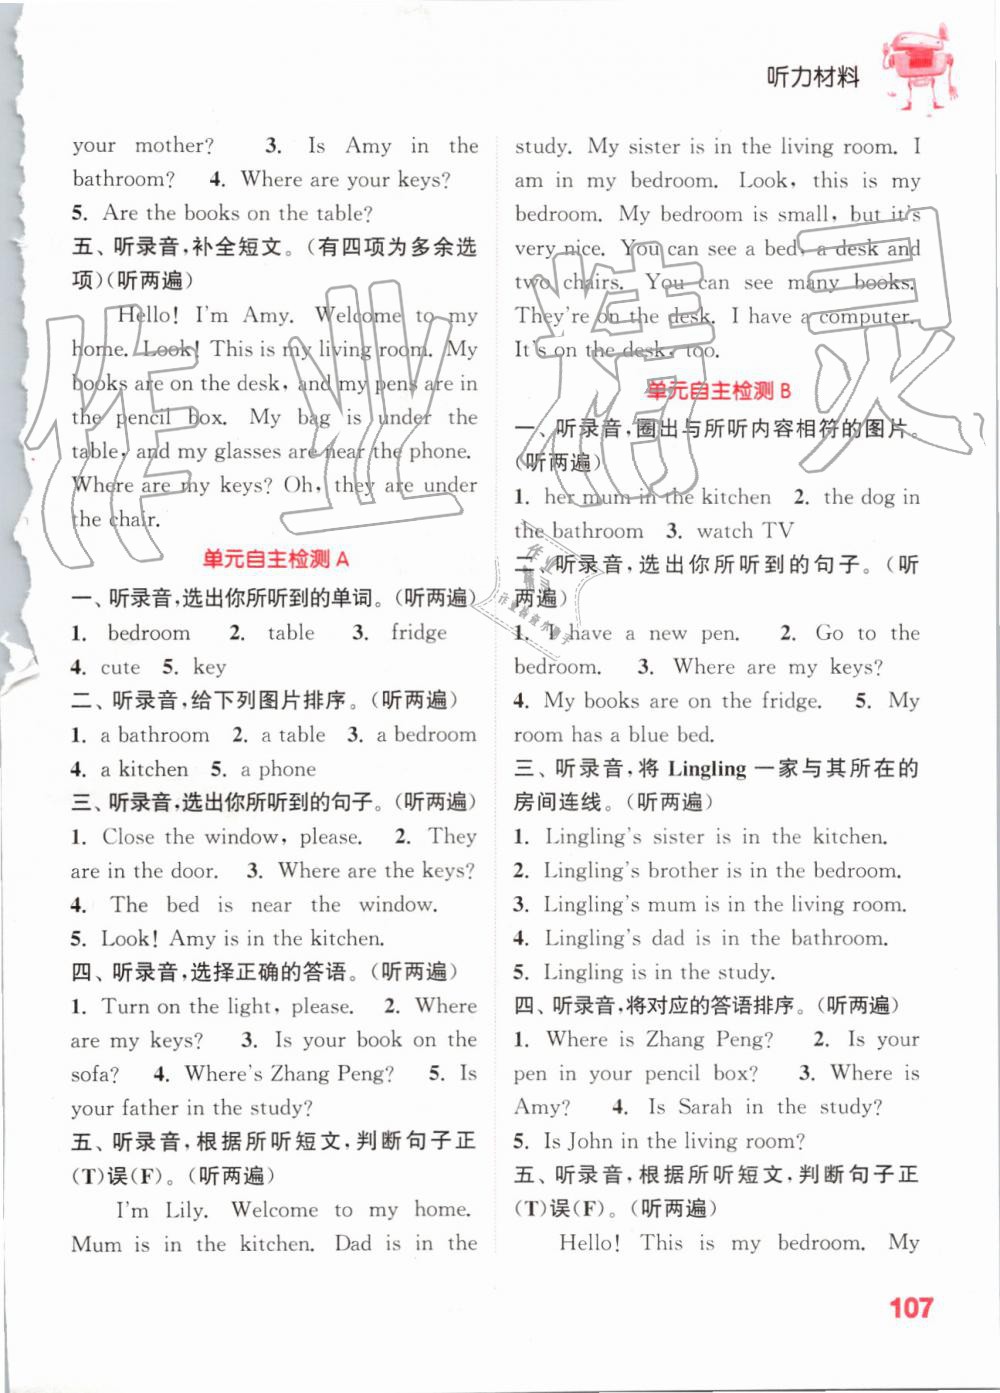 听力材料
your mother? 3. Is Amy in the
bathroom? 4. Where are your keys?
5. Are the books on the table?
五、听录音,补全短文。(有四项为多余选
项)(听两遍)
Hello! I'm Amy. Welcome to my
home. Look! This is my living room. My
books are on the desk, and my pens are in
the pencil box. My bag is under the
table, and my glasses are near the phone.
Where are my keys? Oh, they are under
the chair.
单元自主检测 A
一、听录音,选出你所听到的单词。(听两遍)
1. bedroom 2. table 3. fridge
4. cute 5. key
二、听录音,给下列图片排序。(听两遍)
1. a bathroom 2. a table 3. a bedroom
4. a kitchen 5. a phone
三、听录音,选出你所听到的句子。(听两遍)
1. Close the window, please. 2. They
are in the door. 3. Where are the keys?
4. The bed is near the window.
5. Look! Amy is in the kitchen.
四、听录音,选择正确的答语。(听两遍)
1. Turn on the light, please. 2. Where
are my keys? 3. Is your book on the
sofa? 4. Where's Zhang Peng? 5. Is
your father in the study?
五、听录音,根据所听短文,判断句子正
(T)误(F)。(听两遍)
I'm Lily. Welcome to my home.
Mum is in the kitchen. Dad is in the
study. My sister is in the living room. I
am in my bedroom. Look, this is my
bedroom. My bedroom is small, but it's
very nice. You can see a bed, a desk and
two chairs. You can see many books.
They're on the desk. I have a computer.
It's on the desk, too.
单元自主检测 B
一、听录音,圈出与所听内容相符的图片。
(听两遍)
1. her mum in the kitchen 2. the dog in
the bathroom 3. watch TV
二、听录音,选出你所听到的句子。(听
两遍)
1. I have a new pen. 2. Go to the
bedroom. 3. Where are my keys?
4. My books are on the fridge. 5. My
room has a blue bed.
三、听录音,将 Lingling 一家与其所在的
房间连线。(听两遍)
1. Lingling's sister is in the kitchen.
2. Lingling's brother is in the bedroom.
3. Lingling's mum is in the living room.
4. Lingling's dad is in the bathroom.
5. Lingling is in the study.
四、听录音,将对应的答语排序。(听两遍)
1. Where is Zhang Peng? 2. Is your
pen in your pencil box? 3. Where is
Amy? 4. Is Sarah in the study?
5. Is John in the living room?
五、听录音,根据所听短文,判断句子正
(T)误(F)。(听两遍)
Hello! This is my bedroom. My
107
作业精灵